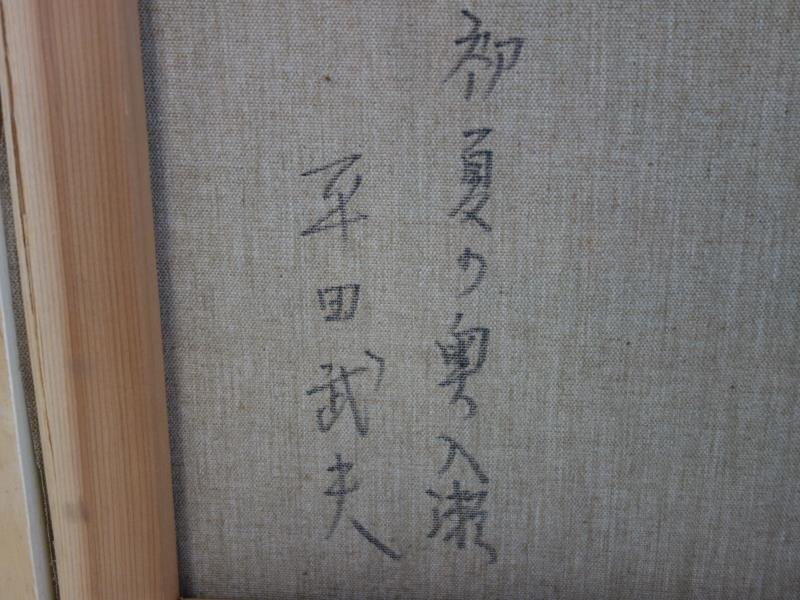 初夏の奥入瀬
平田武夫